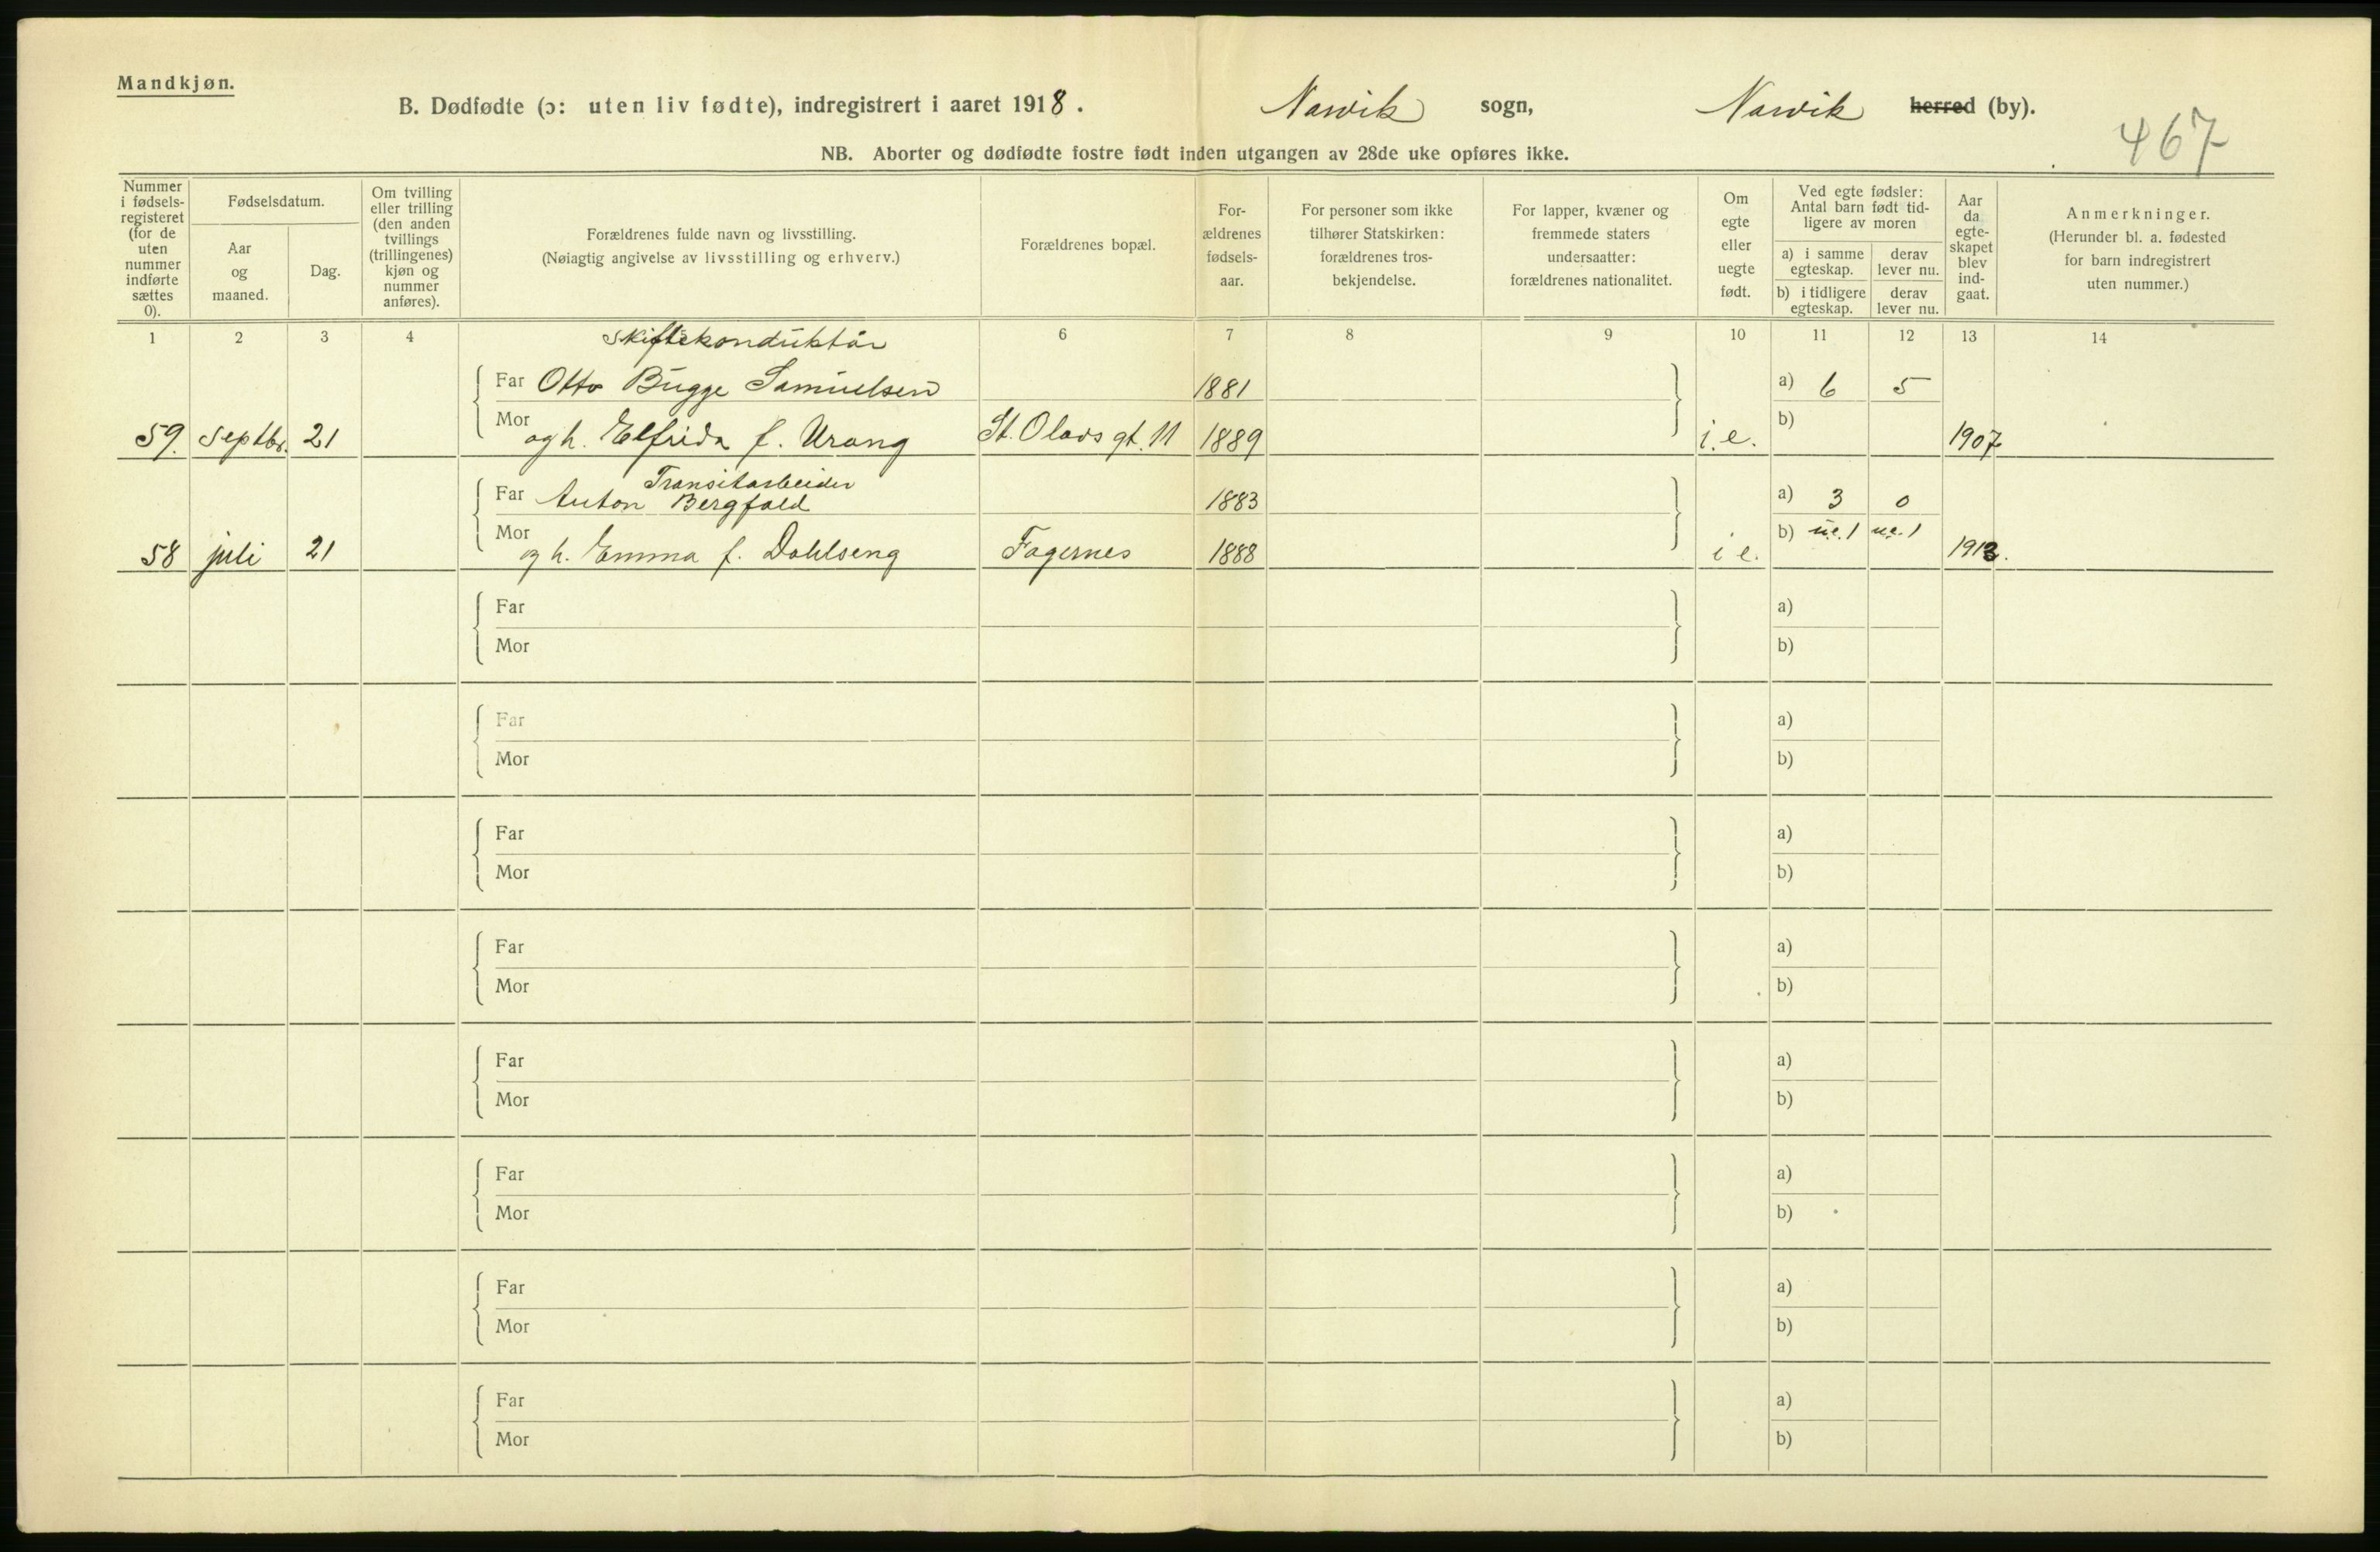 Mandkjøn.
B. Dødfødte (ɔ: uten liv fødte), indregistrert i aaret 1918. Narvik sogn, Narvik herred (by).
467
NB. Aborter og dødfødte fostre født inden utgangen av 28de uke opføres ikke.
Nummer i fødselsregisteret (for de uten nummer indførte sættes 0).
Fødselsdatum.
Aar og maaned.
Dag.
Om tvilling eller trilling (den anden tvillings (trillingenes) kjøn og nummer anføres).
Forældrenes fulde navn og livsstilling.
(Nøiagtig angivelse av livsstilling og erhverv.)
Forældrenes bopæl.
Forældrenes fødselsaar.
For personer som ikke tilhører Statskirken: forældrenes trosbekjendelse.
For lapper, kvæner og fremmede staters undersaatter: forældrenes nationalitet.
Om egte eller uegte født.
Ved egte fødsler: Antal barn født tidligere av moren
a) i samme egteskap. derav lever nu.
b) i tidligere egteskap. derav lever nu.
Aar da egteskapet blev indgaat.
Anmerkninger.
(Herunder bl. a. fødested for barn indregistrert uten nummer.)
1 2 3 4 6 7 8 9 10 11 12 13 14
Skiftekonduktør
Far Otto Bugge Samuelsen 1881 a) 6 5
59. Septbr. 21 Mor og h. Elfrida f. Urang St. Olavs gt. 11 1889 i. e. b) 1907
Transitarbeider
Far Anton Bergfald 1883 a) 3 0
58 juli 21 Mor og h. Emma f. Dahlseng Fagernes 1888 i e. b) u.e. 1 u.e. 1 1913.
Far a)
Mor b)
Far a)
Mor b)
Far a)
Mor b)
Far a)
Mor b)
Far a)
Mor b)
Far a)
Mor b)
Far a)
Mor b)
Far a)
Mor b)